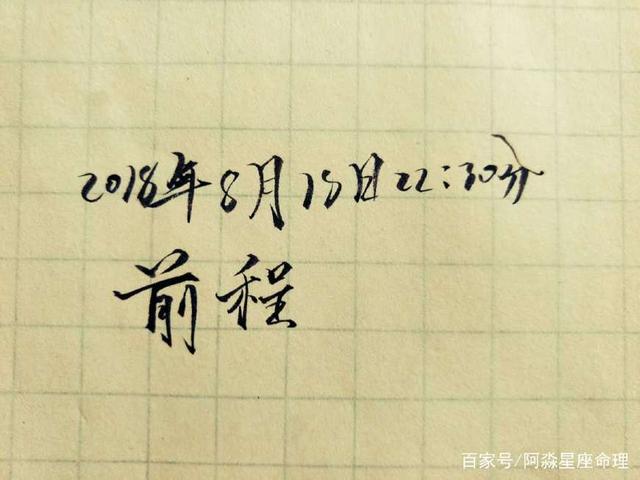 2018年8月18日22:30分
前程
百家号/阿淼星座命理